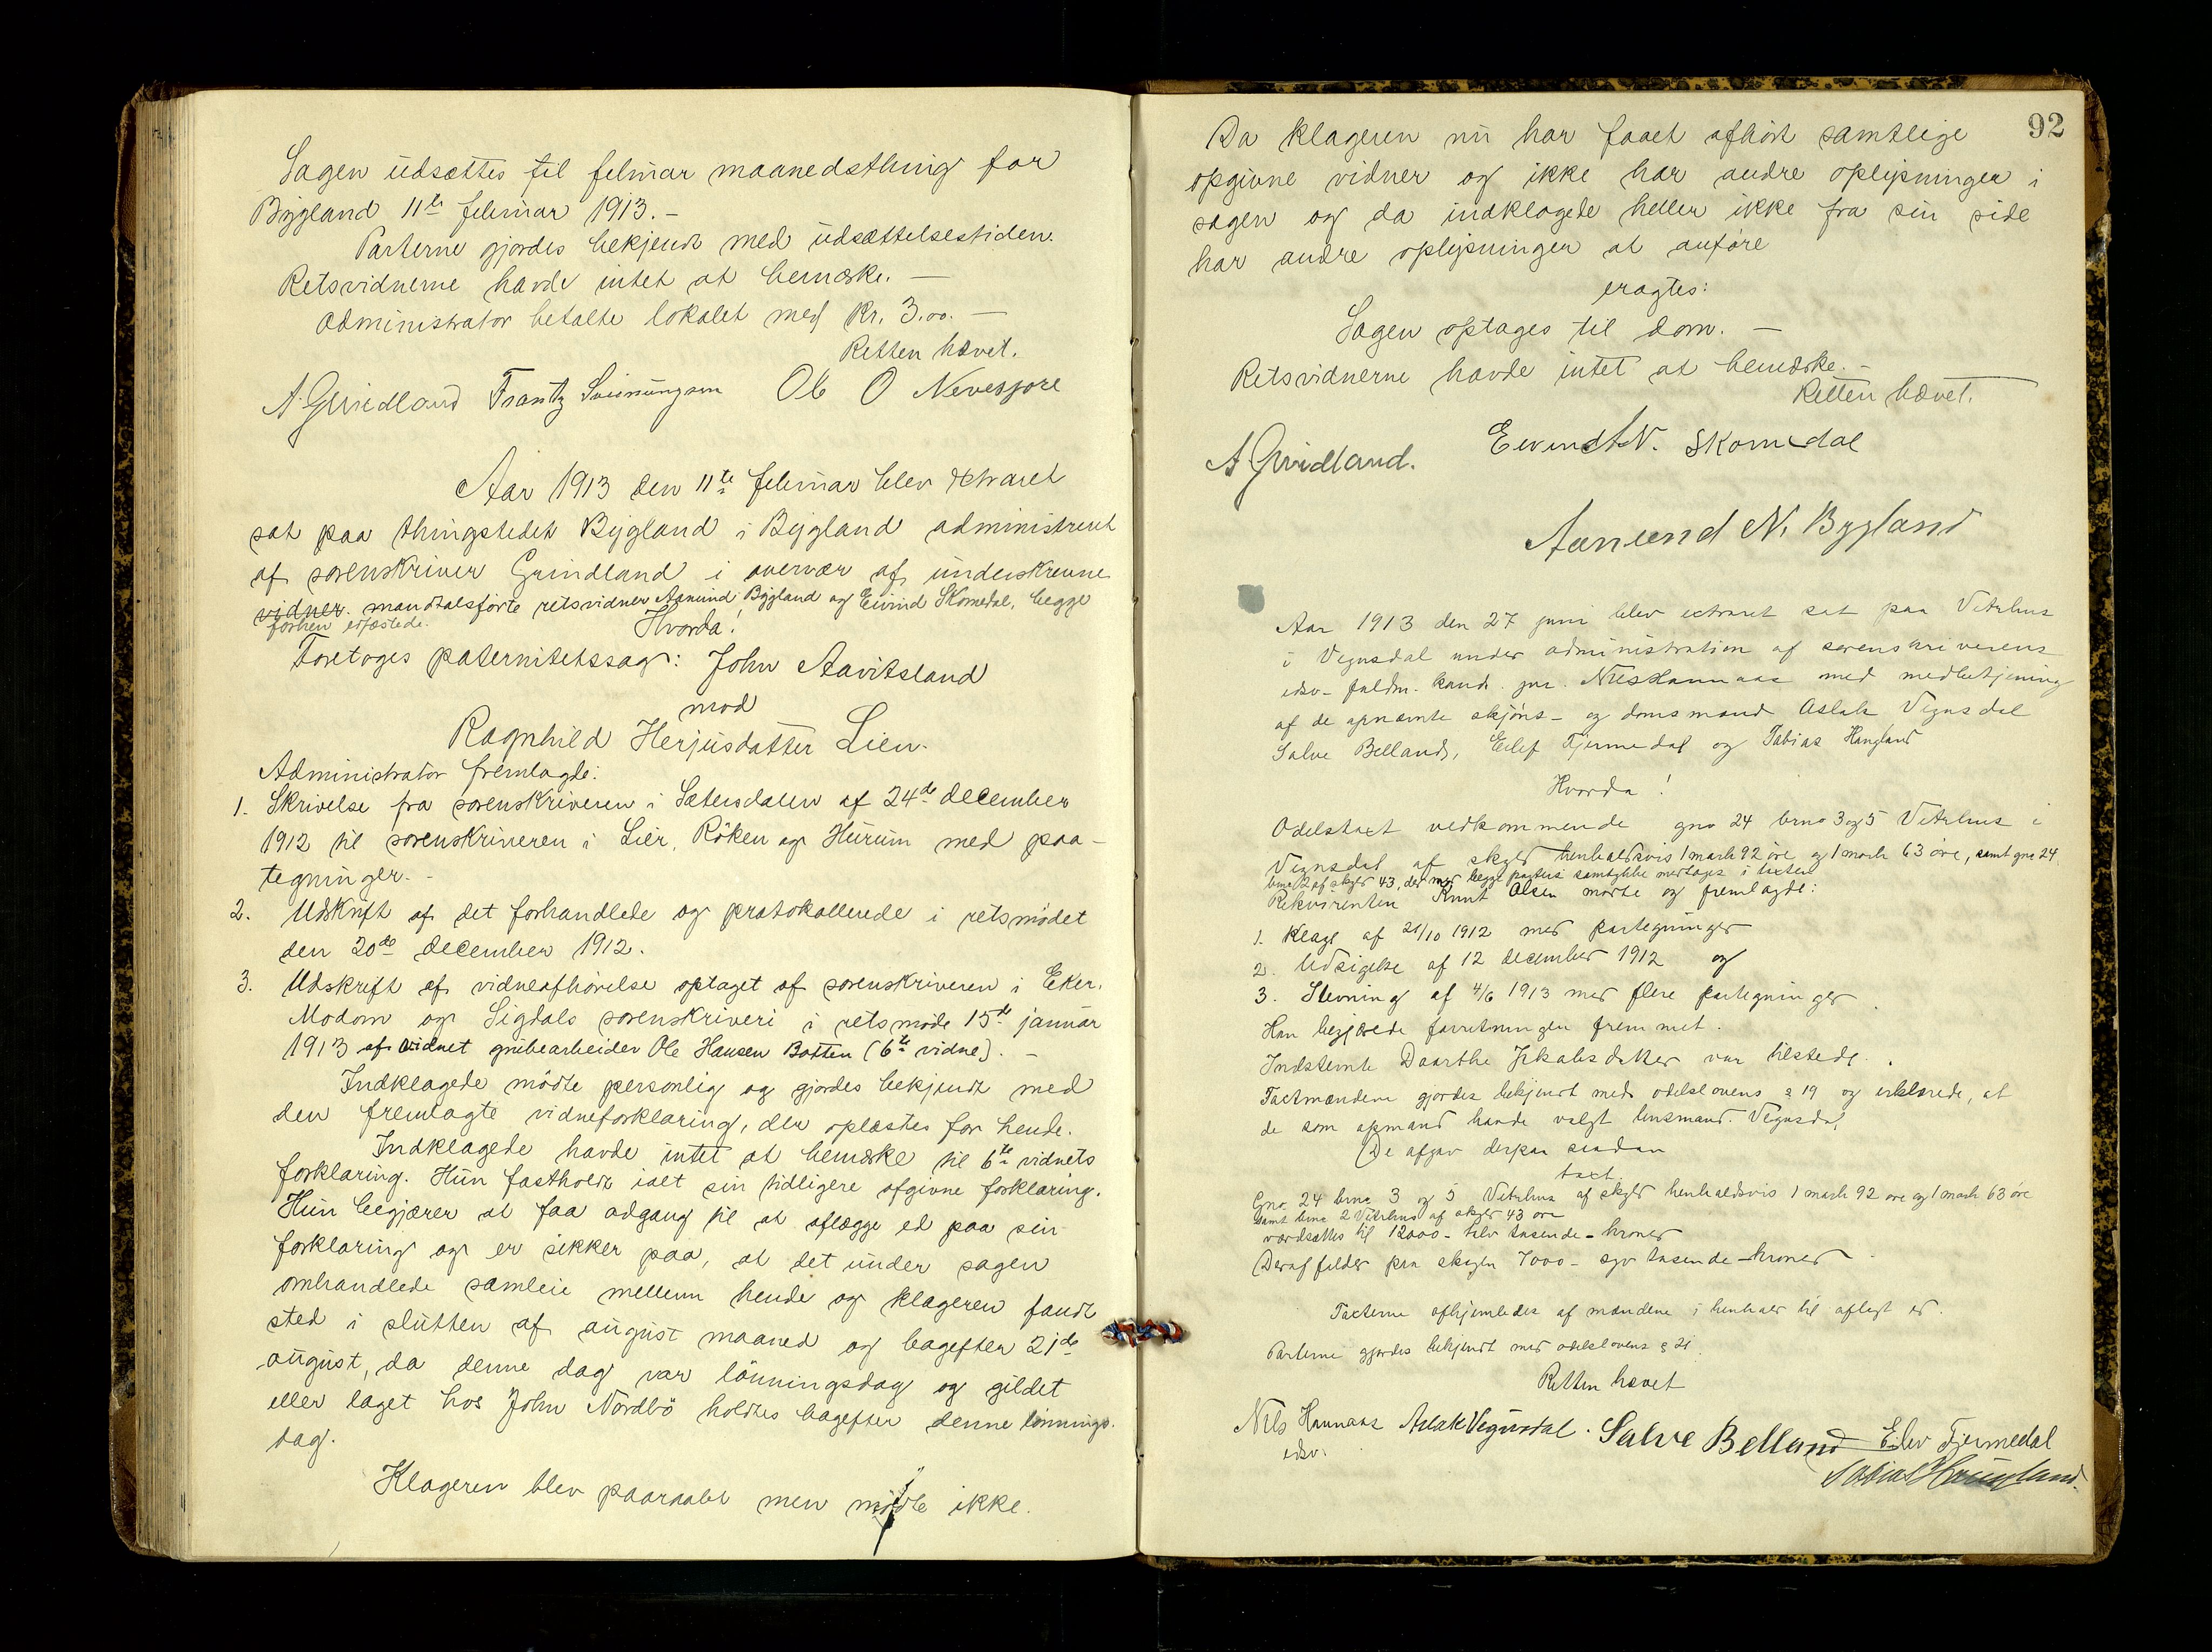 Sagen udsættes til februar maanedsthing for
Bygland 11te februar 1913. –
Parterne gjordes bekjendt med udsættelsestiden.
Retsvidnerne havde intet at bemærke. –
Administrator betalte lokalet med Kr. 3.00. –
Retten hævet.
A. Grindland Frantz Sveinungsen Ole O Nevesjore
Aar 1913 den 11te februar blev extraret
sat paa thingstedet Bygland i Bygland administreret
af sorenskriver Grindland i overvær af underskrevne
vidner. mandtalsførte retsvidner Aanund Bygland og Eivind Skomedal, begge
forhen edfæstede.
Hvorda!
Foretoges paternitetssag: John Aavitsland
mod
Ragnhild Herjusdatter Lien.
Administrator fremlagde:
1. Skrivelse fra sorenskriveren i Sætersdalen af 24de december
1912 til sorenskriveren i Lier, Röken og Hurum med paa-
tegninger. -
2. Udskrift af det forhandlede og protokollerede i retsmödet
den 20de december 1912.
3. Udskrift af vidneafhörelse optaget af sorenskriveren i Eker,
Modum og Sigdals sorenskriveri i retsmöde 15de januar
1913 af vidnet grubearbeider Ole Hansen Botten (6te vidne). –
Indklagede mödte personlig og gjordes bekjendt med
den fremlagte vidneforklaring, der oplæstes for hende.
Indklagede havde intet at bemærke til 6te vidnets
forklaring. Hun fastholdt ialt sin tidligere afgivne forklaring.
Hun begjærer at faa adgang til at aflægge ed paa sin
forklaring og er sikker paa, at det under sagen
omhandlede samleie mellem hende og klageren fandt
sted i slutten af august maaned og bagefter 21de
august, da denne dag var lönningsdag og gildet
eller laget hos John Nordbö holdtes bagefter denne lönnings-
dag.
Klageren blev paaraabt men mödte ikke.
92
Da klageren nu har faaet afhört samtlige
opgivne vidner og ikke har andre oplysninger i
sagen og da indklagede heller ikke fra sin side
har andre oplysninger at anföre
eragtes:
Sagen optages til dom. –
Retsvidnerne havde intet at bemærke. –
Retten hævet.
A. Grindland. Eivind N. Skomedal
Aanund N. Bygland
Aar 1913 den 27 juni blev extraret sat paa Vetrhus
i Vegusdal under administration af sorenskriverens
edsv. fuldm. kand. jur. Nils Hannaas med medbetjening
af de opnævnte skjöns- og domsmænd Aslak Vegusdal
Salve Belland, Eilef Fjermedal og Tobias Haugland
Hvorda!
Odelstaxt vedkommende gno 24 brno 3 og 5 Vetrhus i
Vegusdal af skyld henholdsvis 1 mark 92 öre og 1 mark 63 öre, samt gno 24
brno 2 af skyld 43, der med begge parters samtykke medtages i taxten
Rekvirenten Knut Olsen mödte og fremlagde:
1. Klage af 21/10 1912 med paategninger
2. Udsigelse af 12 december 1912 og
3. Stevning af 4/6 1913 med flere paategninger.
Han begjærede forretningen fremmet.
Indstevnte Daarthe Jakobsdatter var tilstede.
Taxtmændene gjordes bekjendt med odelslovens § 19 og erklærede, at
de som opmand havde valgt lensmand Vegusdal
De afgav derpaa saadan
taxt
Gno 24 brno 3 og 5 Vetrhus af skyld henholdsvis 1 mark 92 öre og 1 mark 63 öre
samt brno 2 Vetrhus af skyld 43 öre
værdsættes til 12000 - tolv tusende - kroner
Deraf falder paa skogen 7000 - syv tusende - kroner
Taxterne afhjemledes af mændene i henhold til aflagt ed.
Parterne gjordes bekjendt med odelslovens § 21.
Retten hævet
Nils Hannaas Aslak Vegusdal. Salve Belland Eilev Fjermedal
edsv. Tobias Haugland.